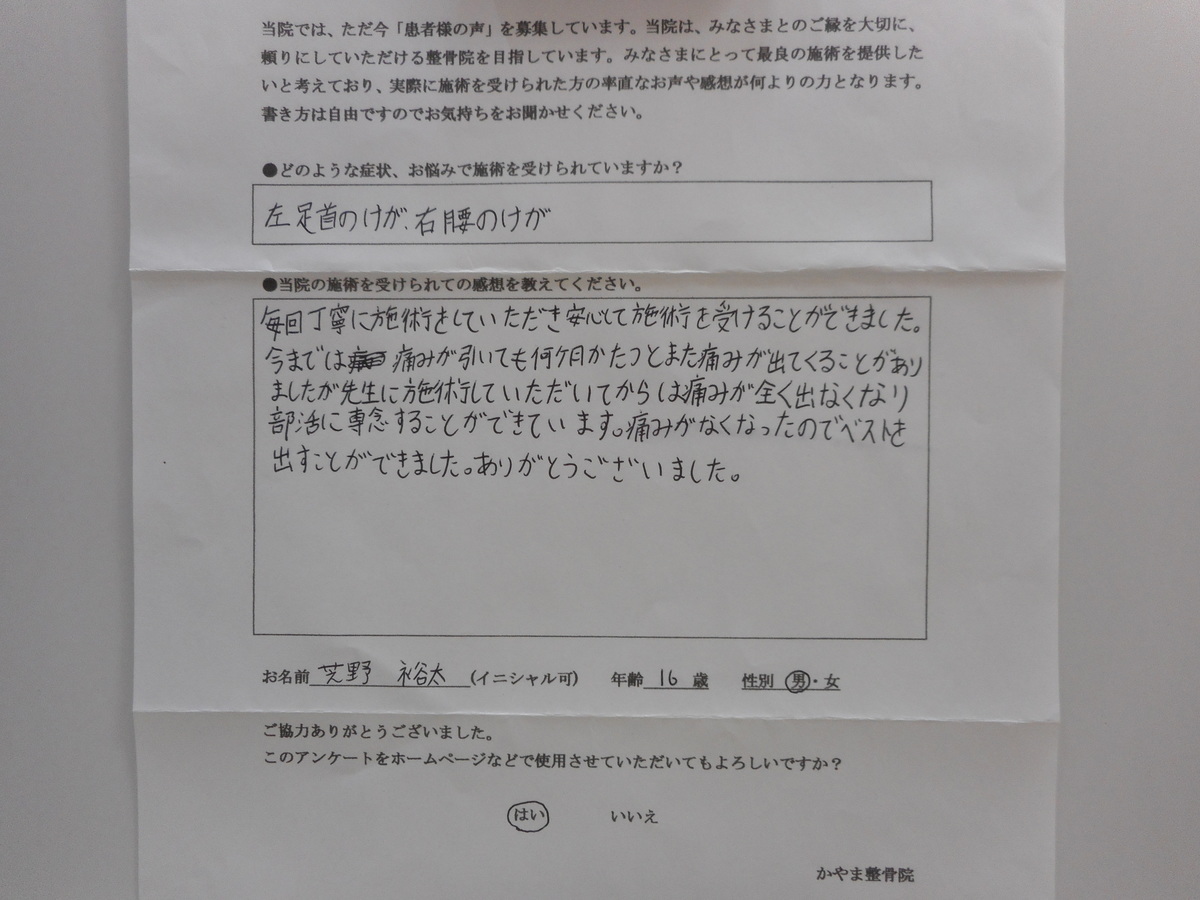 当院では、ただ今「患者様の声」を募集しています。当院は、みなさまとのご縁を大切に、
頼りにしていただける整骨院を目指しています。みなさまにとって最良の施術を提供した
いと考えており、実際に施術を受けられた方の率直なお声や感想が何よりの力となります。
書き方は自由ですのでお気持ちをお聞かせください。
●どのような症状、お悩みで施術を受けられていますか？
左足首のけが、右腰のけが
●当院の施術を受けられての感想を教えてください。
毎回丁寧に施術をしていただき安心して施術を受けることができました。
今までは 痛みが引いても何ケ月かたつとまた痛みが出てくることがあり
ましたが先生に施術していただいてからは痛みが全く出なくなり
部活に専念することができています。痛みがなくなったのでベストを
出すことができました。ありがとうございました。
お名前 芝野 裕太 (イニシャル可) 年齢 16 歳 性別 男・女
ご協力ありがとうございました。
このアンケートをホームページなどで使用させていただいてもよろしいですか？
はい いいえ
かやま整骨院